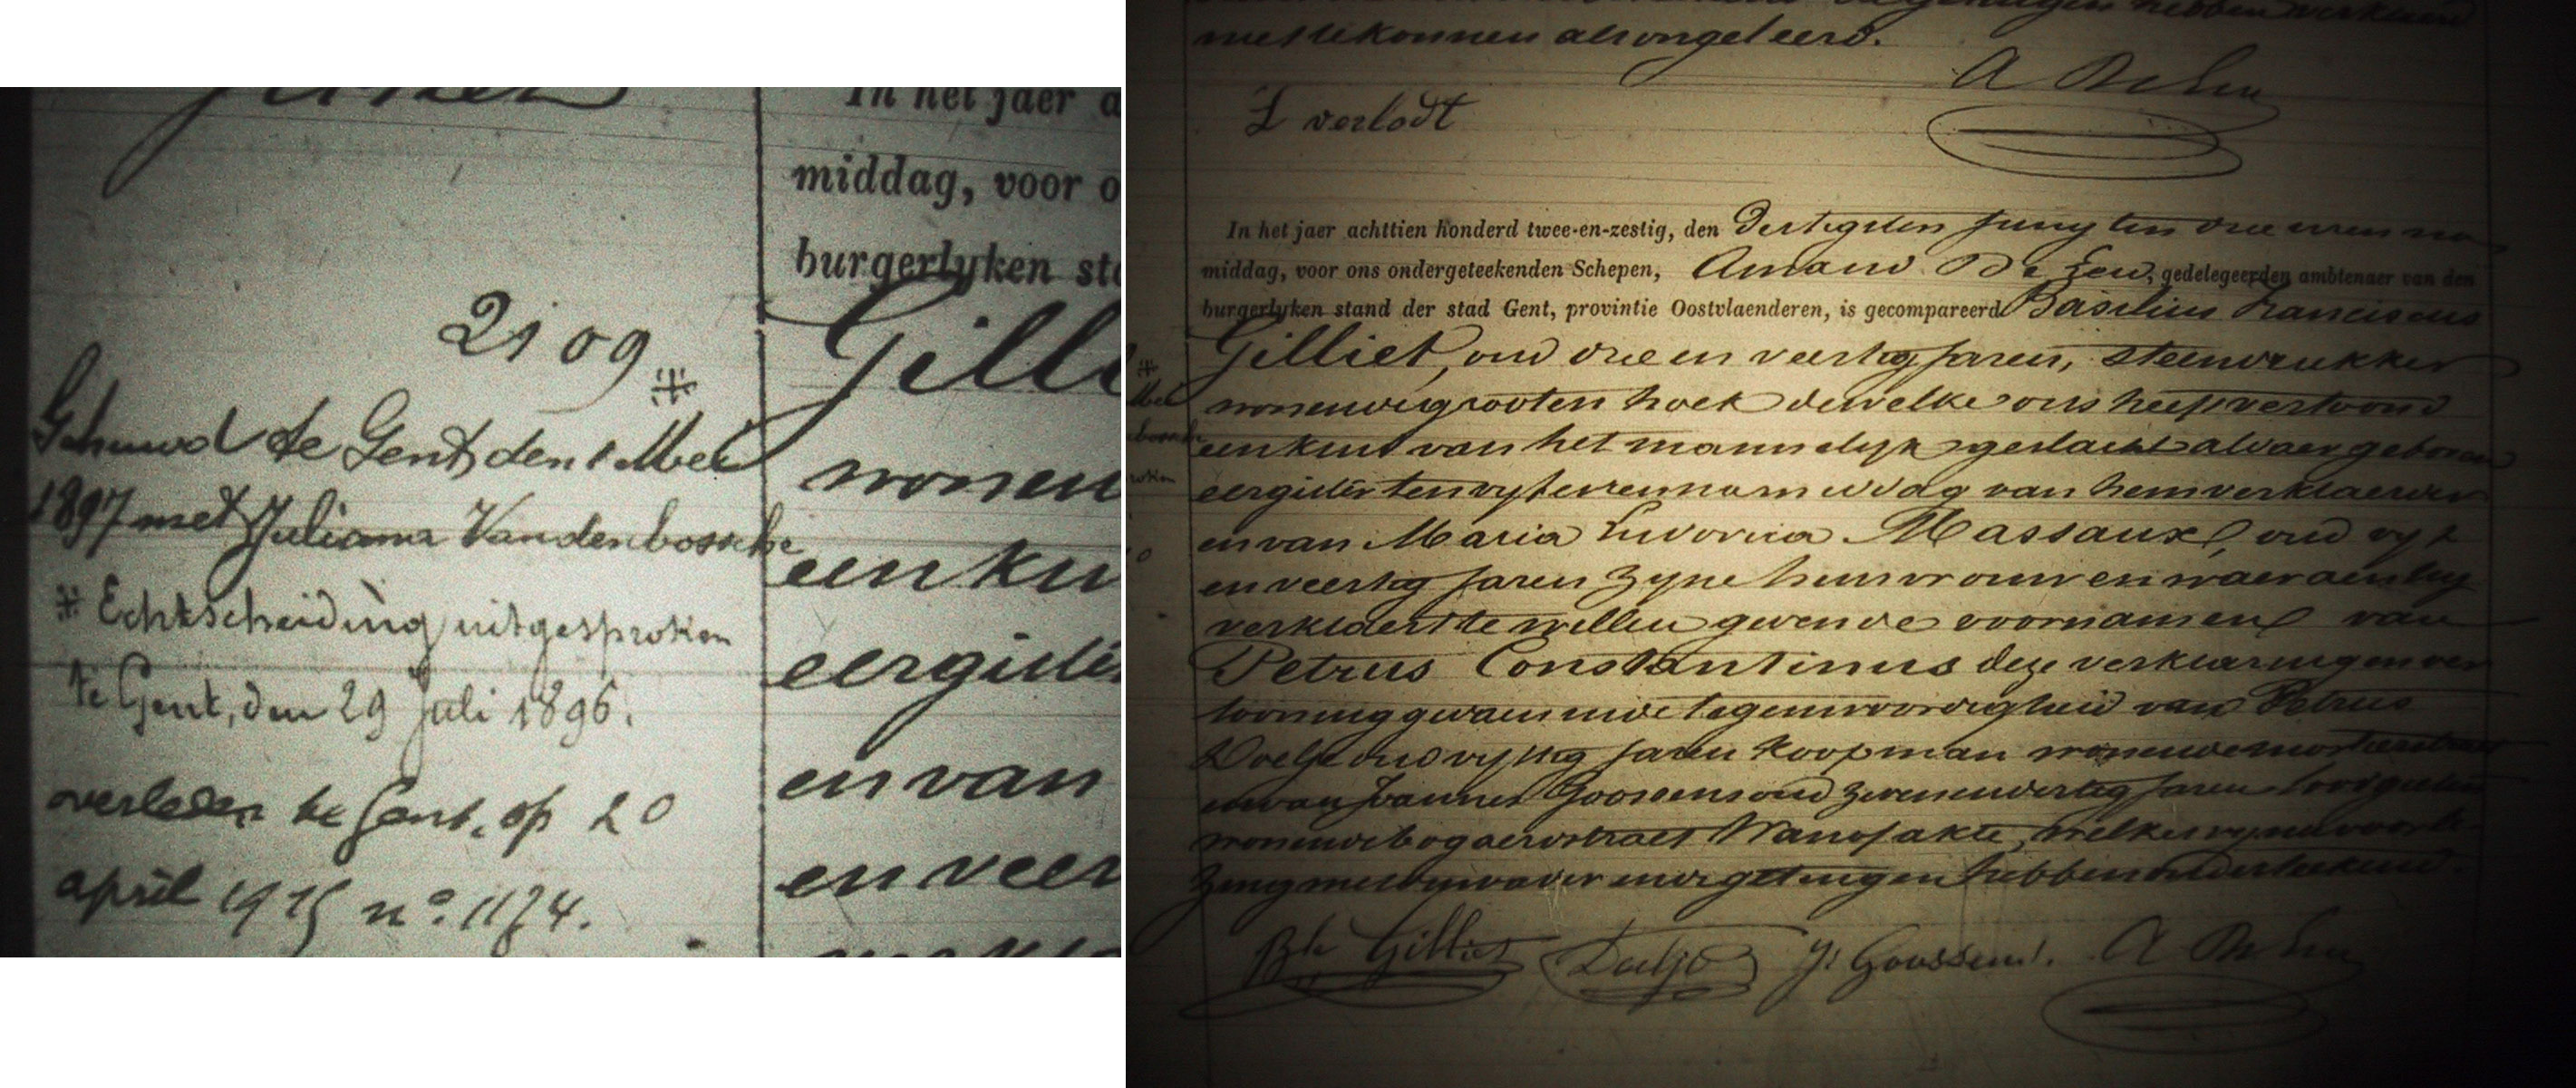 In het jaer a
middag, voor o
burgerlyken sta
2109
Gill
Gehuwd te Gent, den 1 Mei
wonen
1897 met Juliana Vandenbossche
een kin
Echtscheiding uitgesproken
eergister
te Gent, den 29 Juli 1896.
en van
overleden te Gent, op 20
en veer
april 1915 n° 1124.
niet te konnen als ongeleerd.
A De Leu
L verlodt
In het jaer achttien honderd twee-en-zestig, den Dertigsten Juny ten drie uren na
middag, voor ons ondergeteekenden Schepen, Amand De Leu, gedelegeerden ambtenaer van den
burgerlyken stand der stad Gent, provintie Oostvlaenderen, is gecompareerd Basilius Franciscus
Gilliet, oud drie en veertig jaren, steendrukker
wonende grooten hoek dewelke ons heeft vertoond
een kind van het mannelyk geslacht alvaer geboren
eergister ten vyf uren namiddag van hem verklaerder
en van Maria Ludovica Massaux, oud vyf
en veertig jaren zyne huisvrouw en waeraen hy
verklaert te willen geven de voornamen van
Petrus Constantinus deze verklaring en ver
tooning gedaen in de tegenwoordigheid van Petrus
oud vyftig jaren koopman wonende
en van Joannes Goossens oud zeven en dertig jaren
wonende bogaerdstraet Wanof akte, welke wy na voorle
zing met den vader en de getuigen hebben onderteekend.
Ble Gilliet
J: Goossens.
A De Leu